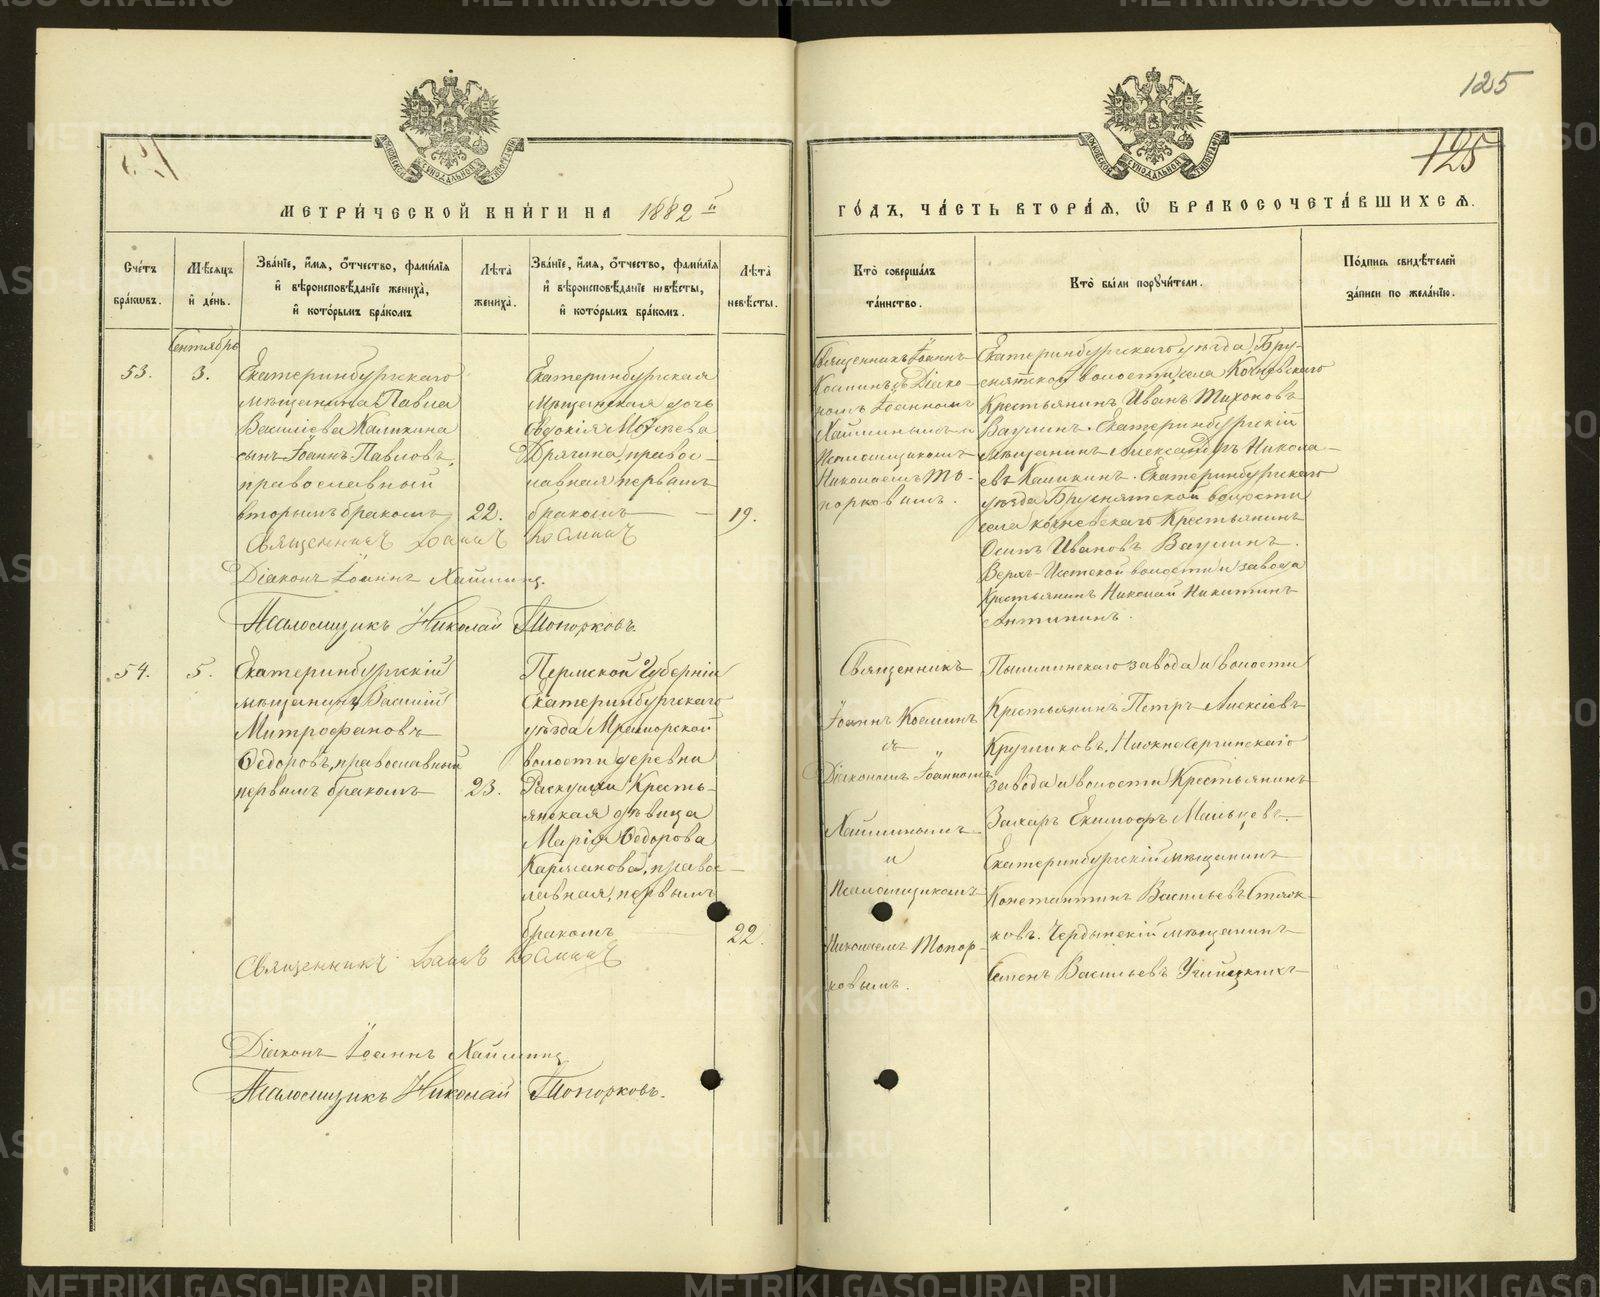 125
125
МЕТРИ́ЧЕСКОЙ КНИ́ГИ НА 1882 й
ГО́ДЪ, ЧА́СТЬ ВТОРА́Я, Ѡ БРАКОСОЧЕТА́ВШИХСЯ.
Счетъ браковъ.
Мѣсяцъ и день.
Званіе, имя, отчество, фамилія и вѣроисповѣданіе жениха, и которымъ бракомъ
Лѣта жениха.
Званіе, имя, отчество, фамилія и вѣроисповѣданіе невѣсты, и которымъ бракомъ.
Лѣта невѣсты.
Кто совершалъ таинство.
Кто были поручители.
Подпись свидѣтелей записи по желанію.
Сентябрь
53.
3.
Екатеринбургскаго
мѣщанина Павла
Васильева Каликина
сынъ Іоаннъ Павловъ,
православный
вторымъ бракомъ
22.
Екатеринбургская
мѣщанская дочь
Евдокія
православная первымъ
бракомъ
19.
Священникъ Іоаннъ
Косминъ съ Діако-
номъ Іоанномъ
Хайминымъ и
Псаломщикомъ
Николаемъ То-
порковымъ.
Екатеринбургскаго уѣзда, Бру-
снятской волости, села Кочневскаго
Крестьянинъ Иванъ Тихоновъ
Ваулинъ. Екатеринбургскій
мѣщанинъ Александръ Никола-
евъ Каликинъ. Екатеринбургскаго
уѣзда Бруснятской волости
села Кочневскаго Крестьянинъ
Осипъ Ивановъ Ваулинъ.
Верхъ-Исетской волости и завода
Крестьянинъ Николай Никитинъ
Антипинъ.
Священникъ Іоаннъ Косминъ
Діаконъ Іоаннъ Хайминъ.
Псаломщикъ Николай Топорковъ.
54.
5.
Екатеринбургскій
мѣщанинъ Василій
Митрофановъ
Ѳедоровъ, православный
первымъ бракомъ
23.
Пермской Губерніи
Екатеринбургскаго
уѣзда Мраморской
волости деревни
Раскуихи Кресть-
янская дѣвица
Марія Ѳедорова
православная, первымъ
бракомъ
22.
Священникъ
Іоаннъ Косминъ
съ
Діакономъ Іоанномъ
Хайминымъ
и
Псаломщикомъ
Николаемъ Топор-
ковымъ.
Пышминскаго завода и волости
Крестьянинъ Петръ Алексіевъ
Кругликовъ, Нижнесергинскаго
завода и волости Крестьянинъ
Захаръ Екимовъ Мальцевъ
Екатеринбургскій мѣщанинъ
Константинъ Васильевъ
ковъ. Чердынскій мѣщанинъ
Семенъ Васильевъ
Священникъ Іоаннъ Косминъ
Діаконъ Іоаннъ Хайминъ
Псаломщикъ Николай Топорковъ.
METRIKI.GASO-URAL.RU